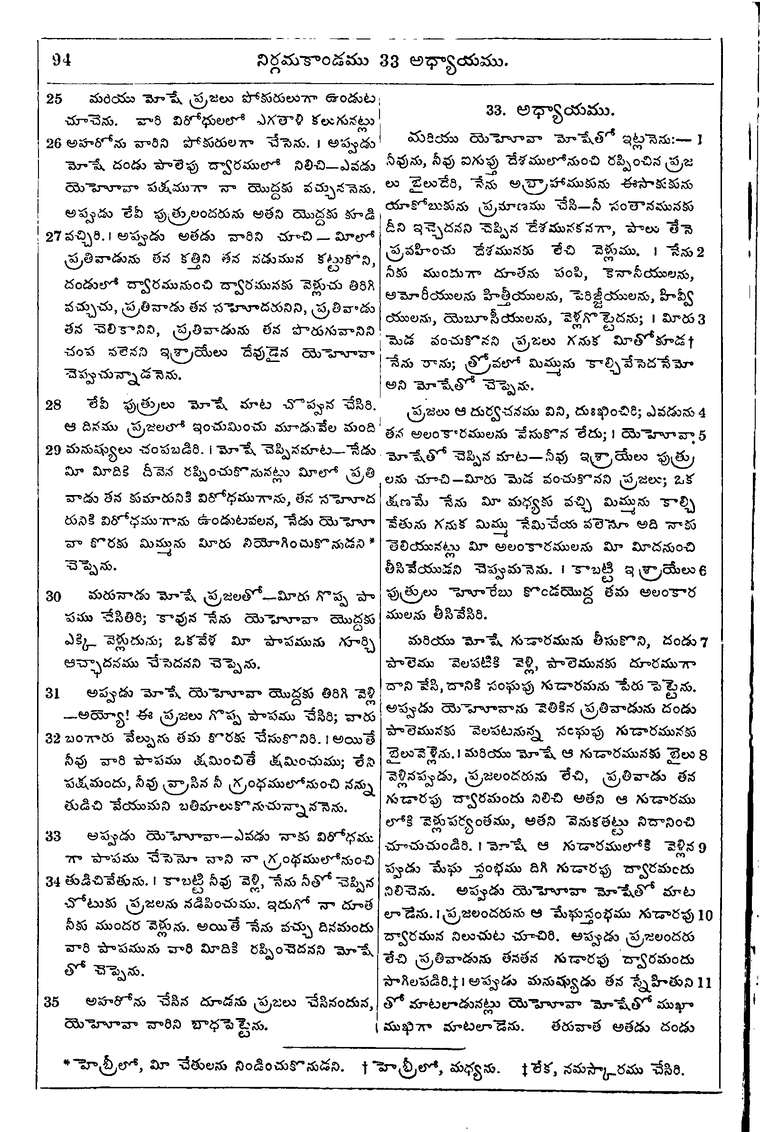 94 నిర్గమకాండము 33 అధ్యాయము.
25 మరియు మోషే ప్రజలు పోకురులుగా ఉండుట
చూచెను. వారి విరోధులలో ఎగతాళి కలుగునట్లు
26 అహరోను వారిని పోకురులగా చేసెను. । అప్పుడు
మోషే దండు పాలెపు ద్వారములో నిలిచి—ఎవడు
యెహోవా పక్షముగా నా యొద్దకు వచ్చుననెను.
అప్పుడు లేవీ పుత్రులందరును అతని యొద్దకు కూడి
27 వచ్చిరి. । అప్పుడు అతడు వారిని చూచి — మీలో
ప్రతివాడును తన కత్తిని తన నడుమున కట్టుకొని,
దండులో ద్వారమునుంచి ద్వారమునకు వెళ్లుచు తిరిగి
వచ్చుచు, ప్రతివాడు తన సహోదరునిని, ప్రతివాడు
తన చెలికానిని, ప్రతివాడును తన పొరుగువానిని
చంప వలెనని ఇశ్రాయేలు దేవుడైన యెహోవా
చెప్పుచున్నాడనెను.
28 లేవీ పుత్రులు మోషే మాట చొప్పున చేసిరి.
ఆ దినము ప్రజలలో ఇంచుమించు మూడువేల మంది
29 మనుష్యులు చంపబడిరి. । మోషే చెప్పినమాట—నేడు
మీ మీదికి దీవెన రప్పించుకొనునట్లు మీలో ప్రతి
వాడు తన కుమారునికి విరోధముగాను, తన సహోద
రునికి విరోధముగాను ఉండుటవలన, నేడు యెహో
వా కొరకు మిమ్మును మీరు నియోగించుకొనుడని*
చెప్పెను.
30 మరునాడు మోషే ప్రజలతో—మీరు గొప్ప పా
పము చేసితిరి; కావున నేను యెహోవా యొద్దకు
ఎక్కి వెళ్లుదును; ఒకవేళ మీ పాపమును గూర్చి
ఆచ్ఛాదనము చేసెదనని చెప్పెను.
31 అప్పుడు మోషే యెహోవా యొద్దకు తిరిగి వెళ్లి
—అయ్యో! ఈ ప్రజలు గొప్ప పాపము చేసిరి; వారు
32 బంగారు వేల్పును తమ కొరకు చేసుకొనిరి. । అయితే
నీవు వారి పాపము క్షమించితే క్షమించుము; లేని
పక్షమందు, నీవు వ్రాసిన నీ గ్రంథములోనుంచి నన్ను
తుడిచి వేయుమని బతిమాలుకొనుచున్నాననెను.
33 అప్పుడు యెహోవా—ఎవడు నాకు విరోధము
గా పాపము చేసెనో వాని నా గ్రంథములోనుంచి
34 తుడిచివేతును. । కాబట్టి నీవు వెళ్లి, నేను నీతో చెప్పిన
చోటుకు ప్రజలను నడిపించుము. ఇదుగో నా దూత
నీకు ముందర వెళ్లును. అయితే నేను వచ్చు దినమందు
వారి పాపమును వారి మీదికి రప్పించెదనని మోషే
తో చెప్పెను.
35 అహరోను చేసిన దూడను ప్రజలు చేసినందున,
యెహోవా వారిని బాధపెట్టెను.
33. అధ్యాయము.
మరియు యెహోవా మోషేతో ఇట్లనెను:— 1
నీవును, నీవు ఐగుప్తు దేశములోనుంచి రప్పించిన ప్రజ
లు బైలుదేరి, నేను అబ్రాహాముకును ఈసాకుకును
యాకోబుకును ప్రమాణము చేసి—నీ సంతానమునకు
దీని ఇచ్చెదనని చెప్పిన దేశమునకనగా, పాలు తేనె
ప్రవహించు దేశమునకు లేచి వెళ్లుము. । నేను 2
నీకు ముందుగా దూతను పంపి, కెనానీయులను,
అమోరీయులను హిత్తీయులను, పెరిజ్జీయులను, హివ్వీ
యులను, యెబూసీయులను, వెళ్లగొట్టెదను; । మీరు 3
మెడ వంచుకొనని ప్రజలు గనుక మీతోకూడ†
నేను రాను; త్రోవలో మిమ్మును కాల్చివేసెదనేమో
అని మోషేతో చెప్పెను.
ప్రజలు ఆ దుర్వచనము విని, దుఃఖించిరి; ఎవడును 4
తన అలంకారములను వేసుకొన లేదు; । యెహోవా 5
మోషేతో చెప్పిన మాట—నీవు ఇశ్రాయేలు పుత్రు
లను చూచి—మీరు మెడ వంచుకొనని ప్రజలు; ఒక
క్షణమే నేను మీ మధ్యకు వచ్చి మిమ్మును కాల్చి
వేతును గనుక మిమ్ము నేమిచేయ వలెనో అది నాకు
తెలియునట్లు మీ అలంకారములను మీ మీదనుంచి
తీసివేయుడని చెప్పుమనెను. । కాబట్టి ఇశ్రాయేలు 6
పుత్రులు హోరేబు కొండయొద్ద తమ అలంకార
ములను తీసివేసిరి.
మరియు మోషే గుడారమును తీసుకొని, దండు 7
పాలెము వెలపటికి వెళ్లి, పాలెమునకు దూరముగా
దాని వేసి, దానికి సంఘపు గుడారమను పేరు పెట్టెను.
అప్పుడు యెహోవాను వెతికిన ప్రతివాడును దండు
పాలెమునకు వెలపటనున్న సంఘపు గుడారమునకు
బైలువెళ్లెను. । మరియు మోషే ఆ గుడారమునకు బైలు 8
వెళ్లినప్పుడు, ప్రజలందరును లేచి, ప్రతివాడు తన
గుడారపు ద్వారమందు నిలిచి అతని ఆ గుడారము
లోకి వెళ్లుపర్యంతము, అతని వెనుకతట్టు నిదానించి
చూచుచుండిరి. । మోషే ఆ గుడారములోకి వెళ్లిన 9
ప్పుడు మేఘ స్తంభము దిగి గుడారపు ద్వారమందు
నిలిచెను. అప్పుడు యెహోవా మోషేతో మాట
లాడెను. । ప్రజలందరును ఆ మేఘస్తంభము గుడారపు 10
ద్వారమున నిలుచుట చూచిరి. అప్పుడు ప్రజలందరు
లేచి ప్రతివాడును తనతన గుడారపు ద్వారమందు
సాగిలపడిరి.‡ । అప్పుడు మనుష్యుడు తన స్నేహితుని 11
తో మాటలాడునట్లు యెహోవా మోషేతో ముఖా
ముఖిగా మాటలాడెను. తరువాత అతడు దండు
* హెబ్రీలో, మీ చేతులను నిండించుకొనుడని. † హెబ్రీలో, మధ్యను. ‡ లేక, నమస్కారము చేసిరి.